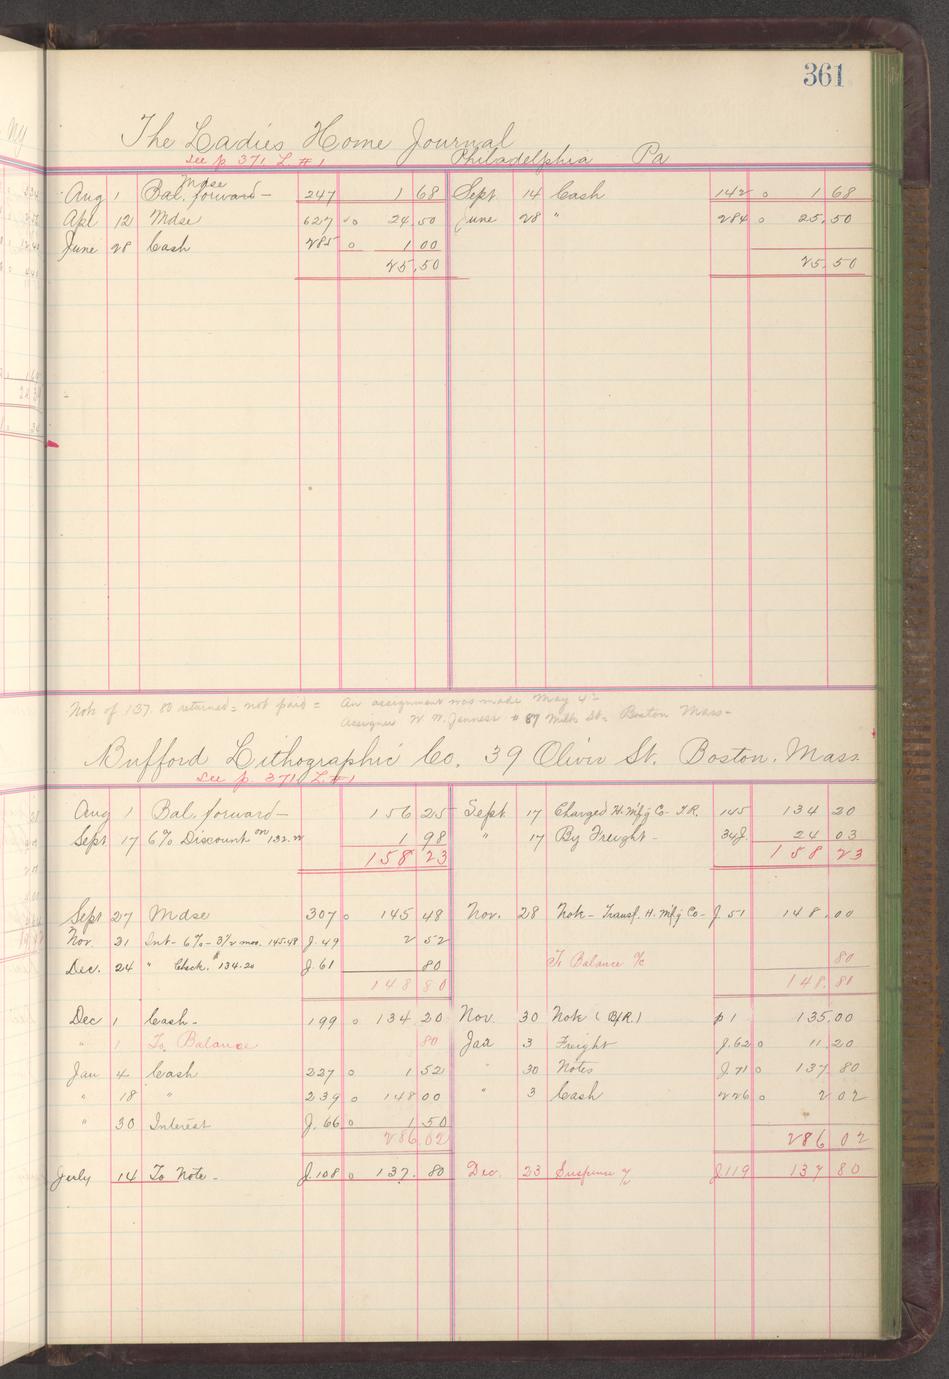 361
The Ladies Home Journal
Philadelphia Pa
See p 371 L #1
Mdse
Aug 1 Bal. forward 247 1 68 Sept 14 Cash 142 o 1 68
Apl 12 Mdse 627 o 24.50 June 28 " 284 o 25.50
June 28 Cash 285 o 1 00
25.50 25.50
Note of 137.80 returned = not paid = An assignment was made May 4th
Assignee W. N. Jenness # 87 Milk St. Boston Mass-
Bufford Lithographic Co. 39 Oliver St. Boston. Mass.
See p. 371 L. #1
Aug 1 Bal. forward 156 25 Sept 17 Charged H. Mfg Co- T.R. 145 134 20
Sept 17 6% Discount on 132.22 1 98 " 17 By Freight - 34J. 24 03
158 23 158 23
Sept 27 Mdse 307 o 145 48 Nov. 28 Note - Transf. H. Mfg Co- J. 51 148.00
Nov. 21 Int- 6% - 3 1/2 mos. 145.48 J. 49 2 52
Dec. 24 " Check. $134.20 J. 61 80 To Balance % 80
148 80 148.80
Dec 1 Cash- 199 o 134 20 Nov. 30 Note (B/R.) p 1 135.00
" 1 To Balance 80 Jan 3 Freight J. 62 o 11.20
Jan 4 Cash 227 o 1 52 " 30 Notes J. 71 o 137 80
" 18 " 239 o 148 00 " 3 Cash 226 o 2 02
" 30 Interest J. 66 o 1 50
286 02 286 02
July 14 To Note- J. 108 o 137.80 Dec. 23 Suspense % J 119 137 80